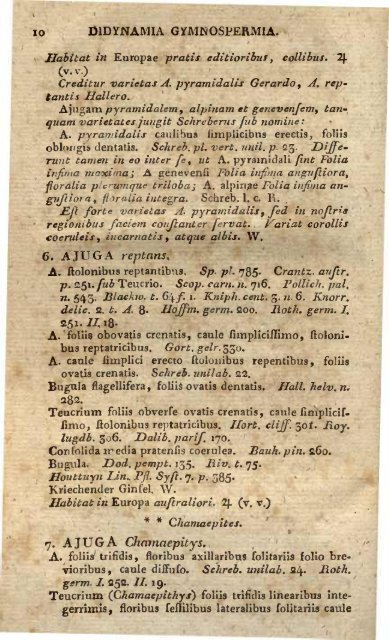 10 DIDYNAMIA GYMNOSPERMIA.
Habitat in Europae pratis editioribus, collibus. ♃
(v. v.)
Creditur varietas A. pyramidalis Gerardo, A. rep-
tantis Hallero.
Ajugam pyramidalem, alpinam et genevenſem, tan-
quam varietates jungit Schreberus ſub nomine:
A. pyramidalis caulibus ſimplicibus erectis, foliis
oblongis dentatis. Schreb. pl. vert. unil. p. 23. Diffe-
runt tamen in eo inter ſe, ut A. pyramidali ſint Folia
infima maxima; A genevenſi Folia infima anguſtiora,
floralia plerumque triloba; A. alpinae Folia infima an-
guſtiora, floralia integra. Schreb. l. c. R.
Eſt forte varietas A. pyramidalis, ſed in noſtris
regionibus faciem conſtanter ſervat. Variat corollis
coeruleis, incarnatis, atque albis. W.
6. AJUGA reptans.
A. ſtolonibus reptantibus. Sp. pl. 785. Crantz. auſtr.
p. 251. ſub Teucrio. Scop. carn. n. 716. Pollich. pal.
n. 543. Blackw. t. 64 f. 1. Kniph. cent. 3. n. 6. Knorr.
delic. 2. t. A. 8. Hoffm. germ. 200. Roth. germ. I.
251. II. 18.
A. foliis obovatis crenatis, caule ſimpliciſſimo, ſtoloni-
bus reptatricibus. Gort. gelr. 330.
A. caule ſimplici erecto ſtolonibus repentibus, foliis
ovatis crenatis. Schreb. unilab. 22.
Bugula flagellifera, foliis ovatis dentatis. Hall. helv. n.
282.
Teucrium foliis obverſe ovatis crenatis, caule ſimpliciſ-
ſimo, ſtolonibus reptatricibus. Hort. cliff. 301. Roy.
lugdb. 306. Dalib. pariſ. 170.
Conſolida media pratenſis coerulea. Bauh. pin. 260.
Bugula. Dod. pempt. 135. Riv. t. 75.
Houttuyn Lin. Pfl. Syſt. 7. p. 385.
Kriechender Ginſel. W.
Habitat in Europa auſtraliori. ♃ (v. v.)
* * Chamaepites.
7. AJUGA Chamaepitys.
A. foliis trifidis, floribus axillaribus ſolitariis folio bre-
vioribus, caule diffuſo. Schreb. unilab. 24. Roth.
germ. I. 252. II. 19.
Teucrium (Chamaepithys) foliis trifidis linearibus inte-
gerrimis, floribus ſeſſilibus lateralibus ſolitariis caule